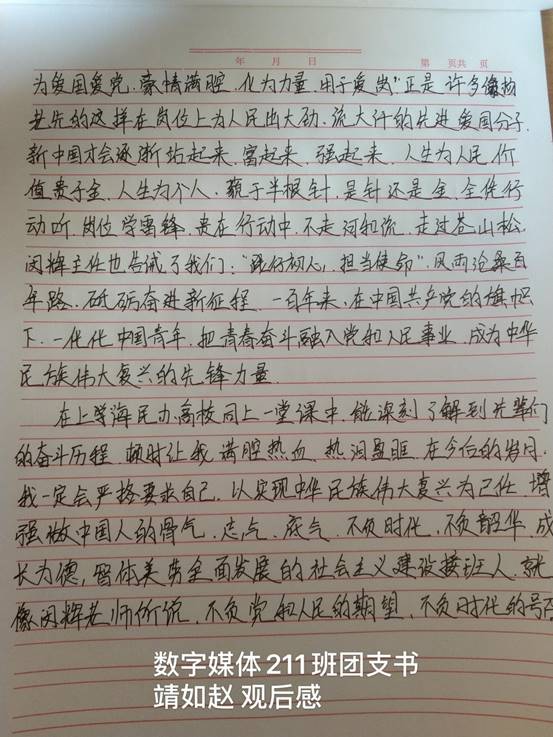 年 月 日 第 页共 页
为爱国爱党，豪情满腔，化为力量，用于爱岗”正是许多像杨
老先的这样在岗位上为人民出大劲、流大汗的先进爱国分子，
新中国才会逐渐站起来、富起来、强起来，人生为人民，价
值贵于金，人生为个人，藐于半根针，是针还是金，全凭行
动听，岗位学雷锋，贵在行动中，不走河和沉，走过苍山松，
闵辉主任也告诫了我们：“践行初心，担当使命”，风雨沧桑百
年路，砥砺奋进新征程，一百年来，在中国共产党的旗帜
下，一代代中国青年，把青春奋斗融入党和人民事业，成为中华
民族伟大复兴的先锋力量
在上学海民办高校同上一堂课中，能深刻了解到先辈们
的奋斗历程，顿时让我满腔热血，热泪盈眶，在今后的岁月，
我一定会严格要求自己，以实现中华民族伟大复兴为己任，增
强做中国人的骨气、志气、底气，不负时代，不负韶华，成
长为德，智体美劳全面发展的社会主义建设接班人，就
像闵辉老师所说，不负党和人民的期望，不负时代的号召
数字媒体211班团支书
靖如赵 观后感